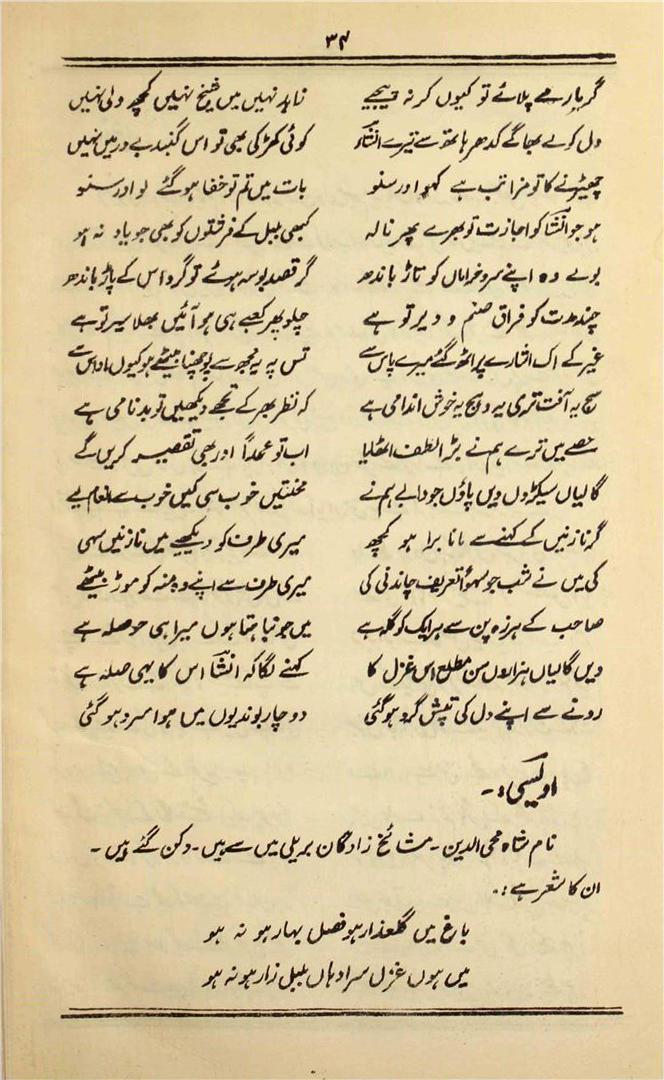 ۳۴
گر یار مے پلائے تو کیوں کر نہ پیجیے زاہد نہیں میں شیخ نہیں کچھ ولی نہیں
دل کو لے بھاگے کدھر ہاتھ سے تیرے انشا کوئی کھڑکی بھی تو اس گنبد بے در میں نہیں
چھیڑنے کا تو مزا تب ہے کہو اور سنو بات میں تم تو خفا ہو گئے لو اور سنو
ہو جو انشا کو اجازت تو بھرے پھر نالہ کبھی بلبل کے فرشتوں کو بھی جو یاد نہ ہو
بولے وہ اپنے سرو خراماں کو تاڑ باندھ گر قصد بوسہ ہوئے تو گرد اس کے پاڑ باندھ
چند مدت کو فراق صنم و دیر تو ہے چلو پھر کعبے ہی ہو آئیں بھلا سیر تو ہے
غیر کے اک اشارے پر اٹھ گئے میرے پاس سے تس پہ یہ مجھ سے پوچھنا بیٹھے ہو کیوں اداس سے
سج یہ آفت تری یہ دھج یہ خوش اندامی ہے کہ نظر بھر کے تجھے دیکھیں تو بدنامی ہے
غصے میں ترے ہم نے بڑا لطف اٹھایا اب تو عمداً اور بھی تقصیر کریں گے
گالیاں سیکڑوں دیں پاؤں جو دابے ہم نے محنتیں خوب سی کیں خوب سے انعام لیے
گر نازنیں کے کہنے سے مانا برا ہو کچھ میری طرف کو دیکھیے میں نازنیں سہی
کی میں نے شب جو سہواً تعریف چاندنی کی میری طرف سے اپنے وہ منہ کو موڑ بیٹھے
صاحب کے ہرزہ پن سے ہر ایک کو گلہ ہے میں جو نباہتا ہوں میرا ہی حوصلہ ہے
دیں گالیاں ہزاروں سن مطلع اس غزل کا کہنے لگا کہ انشا اس کا یہی صلہ ہے
رونے سے اپنے دل کی تپش گرد ہو گئی دو چار بوندیوں میں ہوا سرد ہو گئی
اویسی :-
نام شاہ محی الدین - مشائخ زادگان بریلی میں سے ہیں - دکن گئے ہیں -
ان کا شعر ہے :-
باغ میں گلعذار ہو فصل بہار ہو نہ ہو
میں ہوں غزل سرا وہاں بلبل زار ہو نہ ہو